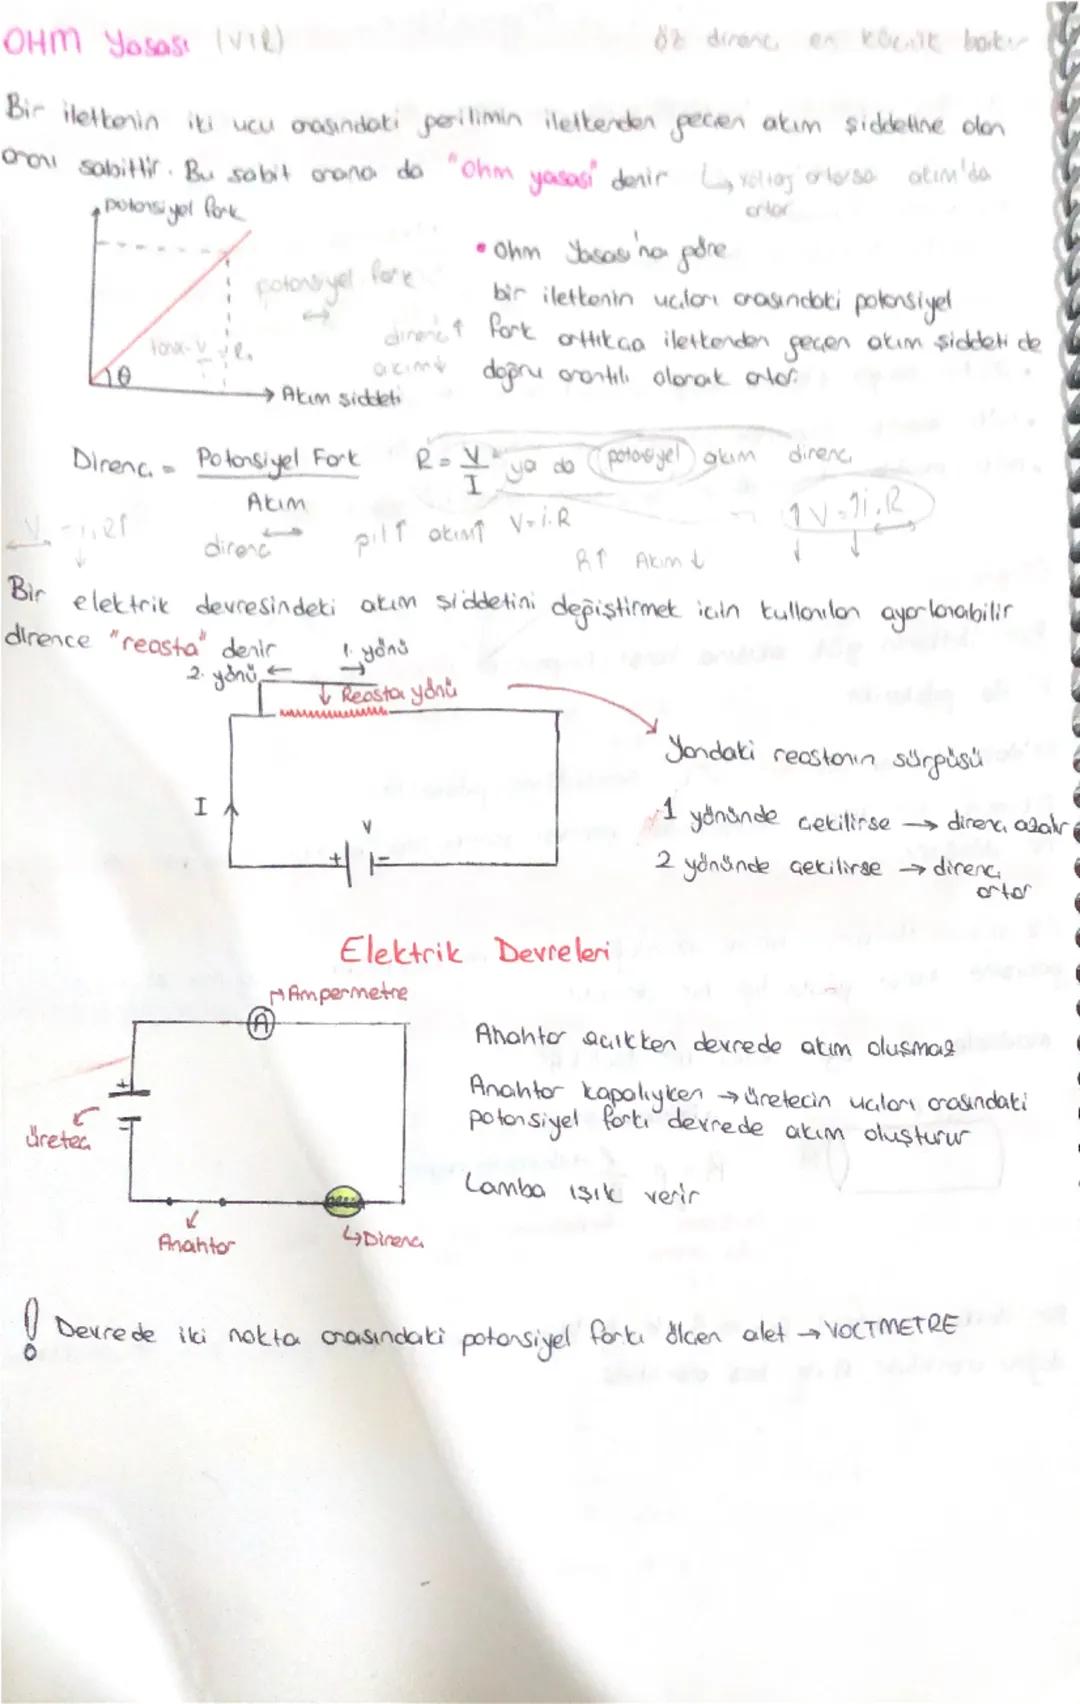 OHM Yasası (VIR)
öz direnç en küçük bakır
Bir iletkenin iki ucu arasındaki gerilimin iletkenden geçen akım şiddetine olan
oranı sabittir. Bu sabit orana da "Ohm yasası" denir ↳ voltaj artarsa akım'da
artar
potansiyel fark
• Ohm Yasası'na göre
potansiyel fark
bir iletkenin uçları arasındaki potansiyel
direnç↑ fark arttıkça iletkenden geçen akım şiddeti de
akım↓ doğru orantılı olarak artar.
θ
→ Akım şiddeti
Direnç = Potansiyel Fark / Akım R = V / I ya da potansiyel akım direnç
↑V=↑i.R
direnç pil↑ akım↑ V=i.R
R↑ Akım↓
Bir elektrik devresindeki akım şiddetini değiştirmek için kullanılan ayarlanabilir
dirence "reosta" denir
1. yönü →
2. yönü ←
↓ Reosta yönü
Yandaki reostanın sürgüsü
I
1 yönünde çekilirse → direnç azalır
V
+ -
2 yönünde çekilirse → direnç
artar
Elektrik Devreleri
Ampermetre
A
Anahtar açıkken devrede akım oluşmaz
Anahtar kapalıyken → üretecin uçları arasındaki
potansiyel farkı devrede akım oluşturur
+
-
üreteç
Lamba ışık verir
Anahtar
↳Direnç
! Devrede iki nokta arasındaki potansiyel farkı ölçen alet → VOLTMETRE